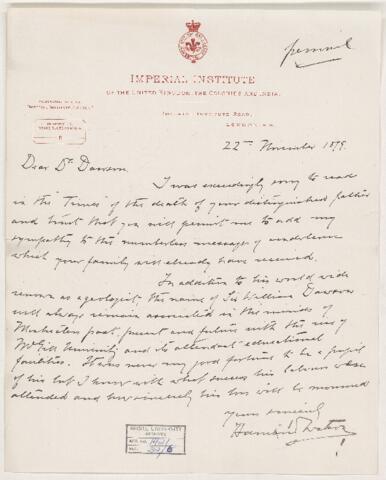 personal
IMPERIAL INSTITUTE
OF THE UNITED KINGDOM, THE COLONIES AND INDIA.
IMPERIAL INSTITUTE ROAD,
LONDON, S.W.
22nd November 1899.
Dear Dr Dawson
I was exceedingly sorry to read
in the "Times" of the death of your distinguished father
and trust that you will permit me to add my
sympathy to the numberless messages of condolence
which your family will already have received.
In addition to his world wide
renown as a geologist, the name of Sir William Dawson
will always remain associated in the minds of
Montrealers past, present and future with the rise of
McGill University and its attendant educational
facilities. It was never my good fortune to be a pupil
of his but I know with what success his labours were
attended and how sincerely his loss will be mourned
Yours sincerely
Harrison Watson
McGILL UNIVERSITY
ARCHIVES
ACC. NO.
REF.